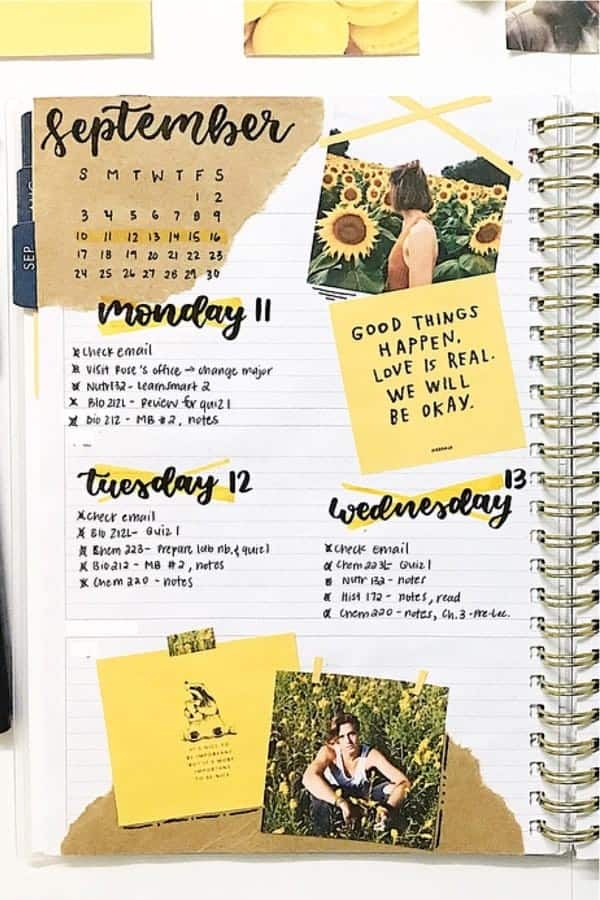 September
S M T W T F S
1 2
3 4 5 6 7 8 9
10 11 12 13 14 15 16
17 18 19 20 21 22 23
24 25 26 27 28 29 30
SEP
GOOD THINGS
HAPPEN.
LOVE IS REAL.
WE WILL
BE OKAY.
monday 11
x check email
x Visit Rose's office → change major
x Nutr 132 - Learnsmart 2
x BIO 212L - Review for quiz 1
x Bio 212 - MB #2, notes
tuesday 12
x check email
x Bio 212L - Quiz 1
x Chem 223 - Prepare lab nb. & quiz 1
x Bio 212 - MB #2, notes
x Chem 220 - notes
wednesday 13
x check email
Chem 223L - Quiz 1
Nutr 132 - notes
Hist 172 - notes, read
Chem 220 - notes, Ch. 3 - Pre-Lec.
IT'S NICE TO
BE IMPORTANT
BUT IT'S MORE
IMPORTANT
TO BE NICE